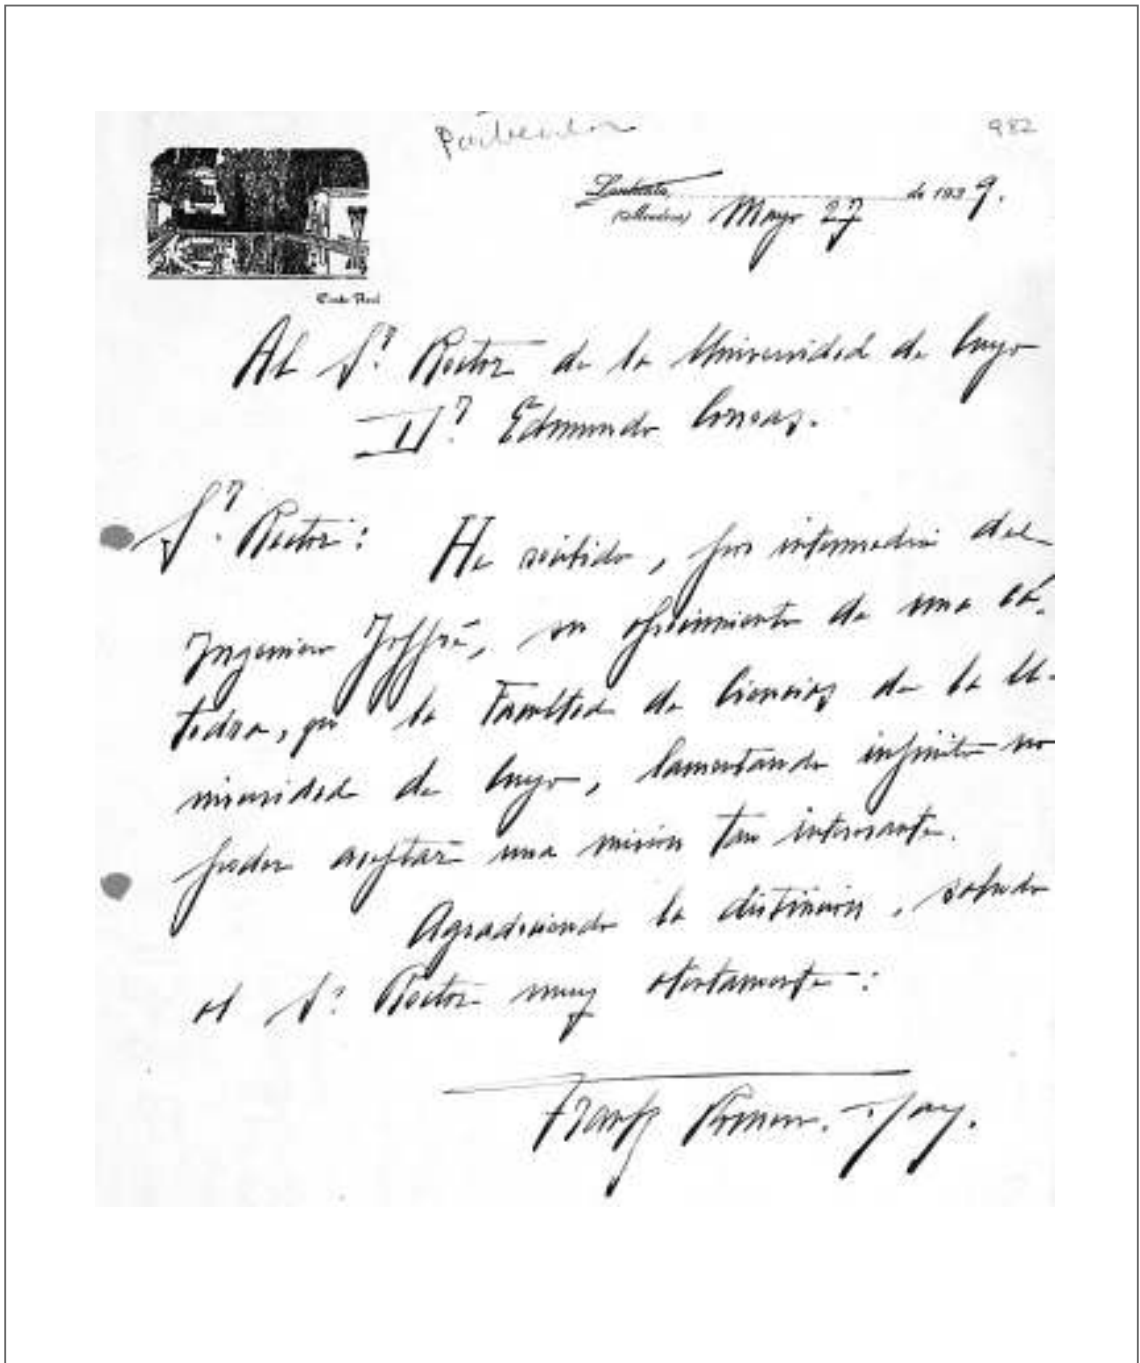 Particular
982
de 1939.
(Mendoza) Mayo 27
Al Sr. Rector de la Universidad de Cuyo
Dr. Edmundo Correas.
Sr. Rector: He recibido, por intermedio del
Ingeniero Joffré, su ofrecimiento de una cá-
tedra, en la Facultad de Ciencias de la U-
niversidad de Cuyo, lamentando infinito no
poder aceptar una misión tan interesante.
Agradeciendo la distinción, saludo
al Sr. Rector muy atentamente: